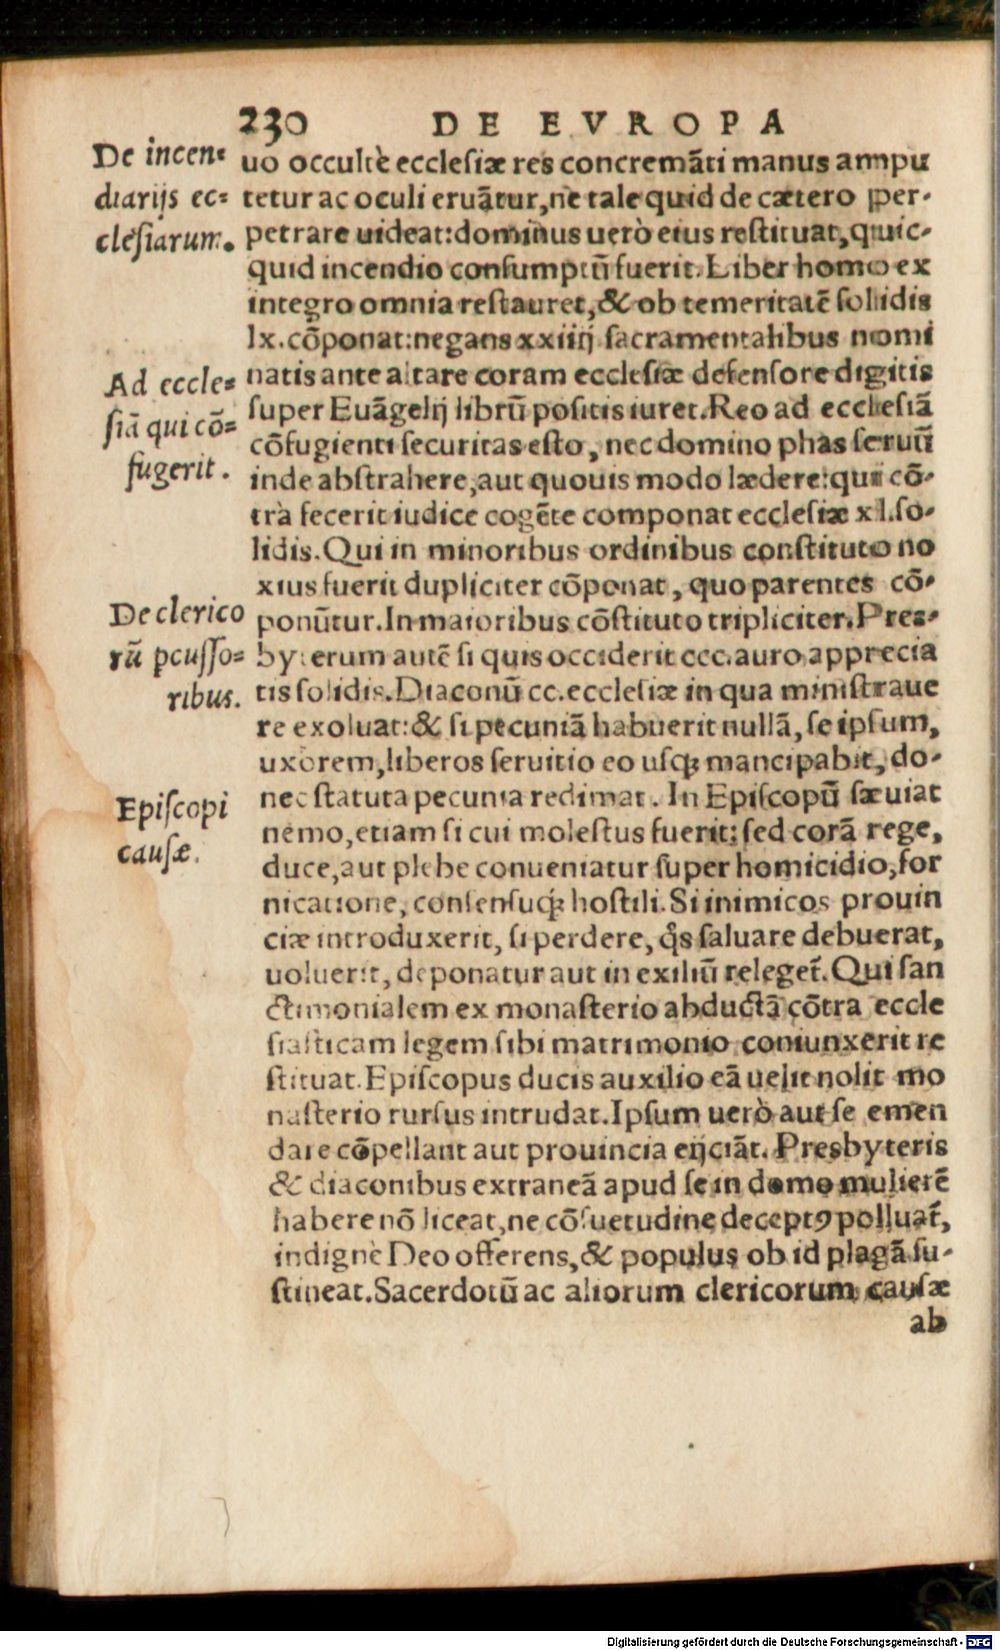 230 DE EVROPA
De incen-
diarijs ec-
clesiarum.
uo occultè ecclesiæ res concremãti manus ampu
tetur ac oculi eruãtur, ne tale quid de cætero per-
petrare uideat: dominus uerò eius restituat, quic-
quid incendio consumptũ fuerit. Liber homo ex
integro omnia restauret, & ob temeritatẽ solidis
lx. cõponat: negans xxiiij sacramentalibus nomi
Ad eccle-
siã qui cõ-
fugerit.
natis ante altare coram ecclesiæ defensore digitis
super Euãgelij librũ positis iuret. Reo ad ecclesiã
cõfugienti securitas esto, nec domino phas seruũ
inde abstrahere, aut quouis modo lædere: qui cõ-
trà fecerit iudice cogẽte componat ecclesiæ xl. so-
lidis. Qui in minoribus ordinibus constituto no
xius fuerit dupliciter cõponat, quo parentes cõ-
De clerico
rũ pcusso-
ribus.
ponũtur. In maioribus cõstituto tripliciter. Pres-
byterum autẽ si quis occiderit ccc. auro apprecia
tis solidis. Diaconũ cc. ecclesiæ in qua ministraue
re exoluat: & si pecuniã habuerit nullã, se ipsum,
uxorem, liberos seruitio eo usq; mancipabit, do-
Episcopi
causæ.
nec statuta pecunia redimat. In Episcopũ sæuiat
nemo, etiam si cui molestus fuerit: sed corã rege,
duce, aut plebe conueniatur super homicidio, for
nicatione, consensuq; hostili. Si inimicos prouin
ciæ introduxerit, si perdere, q̃s saluare debuerat,
uoluerit, deponatur aut in exiliũ releget̃. Qui san
ctimonialem ex monasterio abductã cõtra eccle
siasticam legem sibi matrimonio coniunxerit re
stituat. Episcopus ducis auxilio eã uelit nolit mo
nasterio rursus intrudat. Ipsum uerò aut se emen
dare cõpellant aut prouincia eijciãt. Presbyteris
& diaconibus extraneã apud se in domo mulierẽ
habere nõ liceat, ne cõsuetudine deceptꝰ polluat̃,
indignè Deo offerens, & populus ob id plagã su-
stineat. Sacerdotũ ac aliorum clericorum causæ
ab
Digitalisierung gefördert durch die Deutsche Forschungsgemeinschaft - DFG